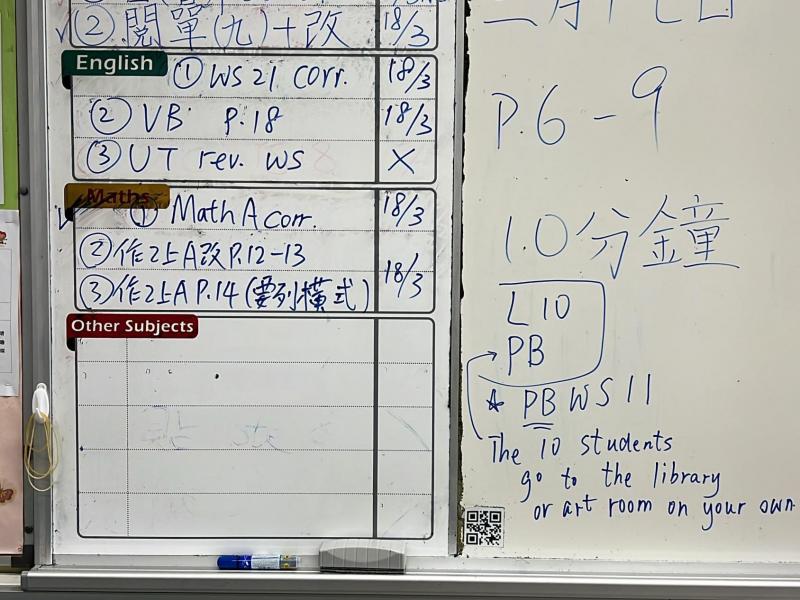 ② 閱單(九)+改 18/3
English
① WS 21 corr. 18/3
② VB P.18 18/3
③ UT rev. WS X
Maths
① Math A corr. 18/3
② 作2上A改P.12-13
③ 作2上A P.14 (要列橫式) 18/3
Other Subjects
P.6-9
10分鐘
L 10
PB
☆ PB WS 11
The 10 students
go to the library
or art room on your own